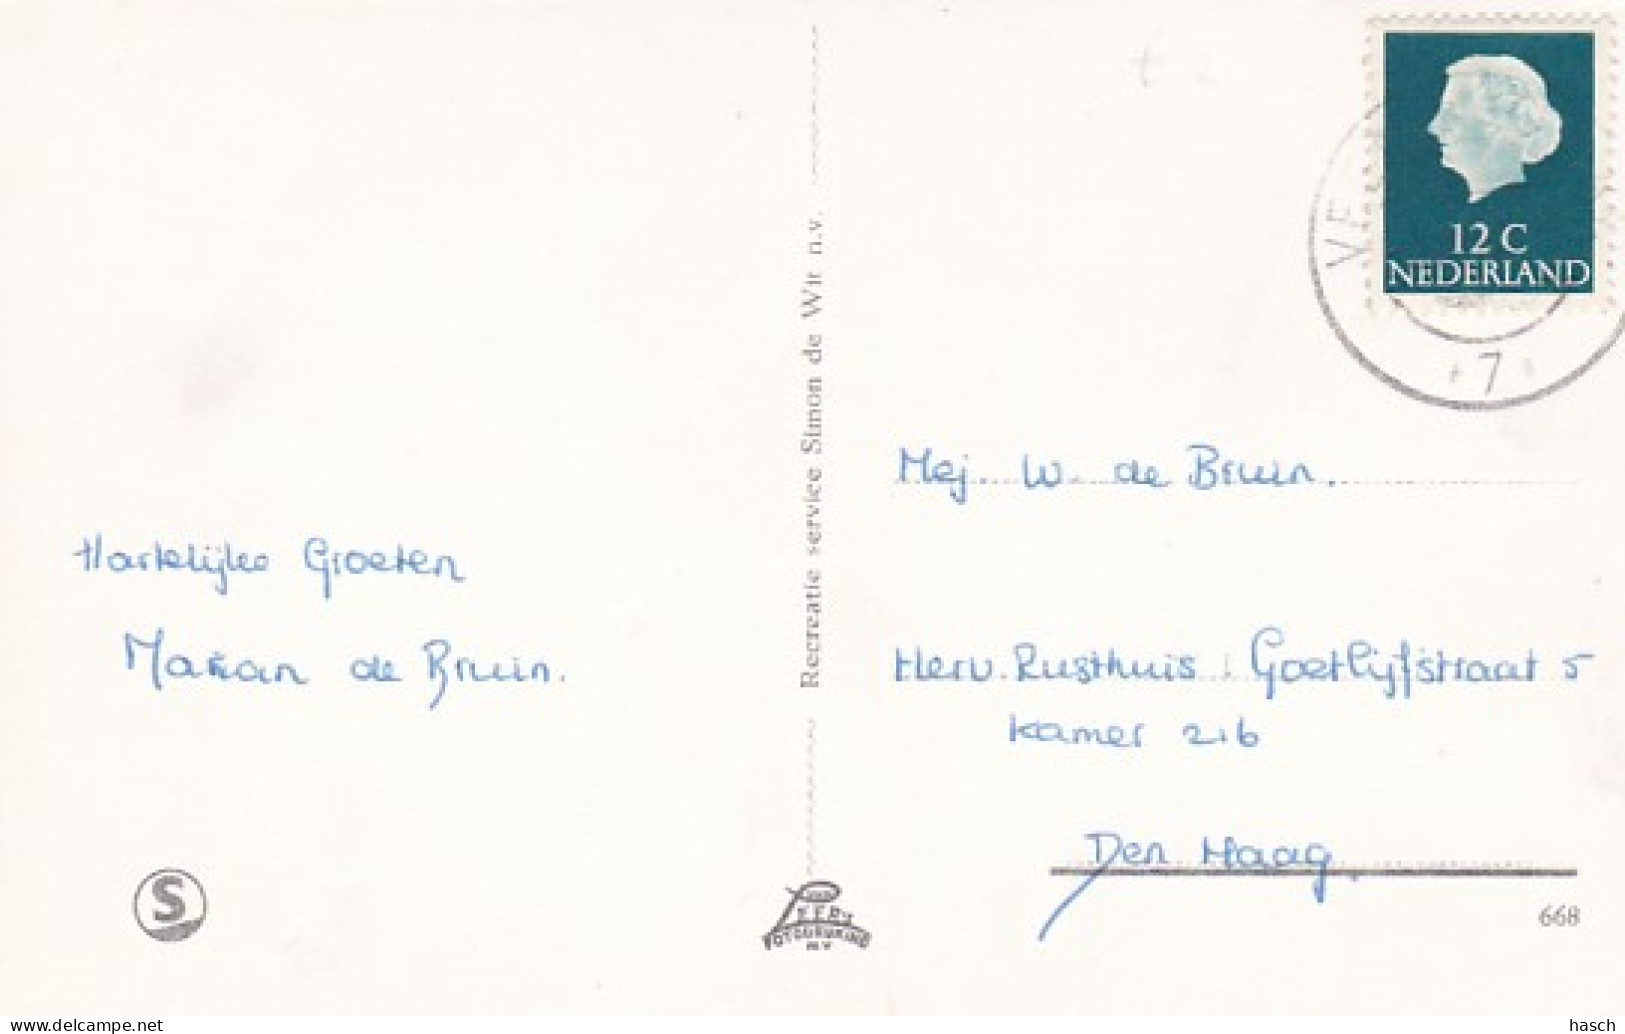 Hartelijke Groeten
Marian de Bruin.
S
Recreatie service Simon de Wit n.v.
12 C
NEDERLAND
7
Mej. W. de Bruin.
Herv. Rusthuis Goetlijfstraat 5
kamer 216
Den Haag
668
hasch
https://www.delcampe.net